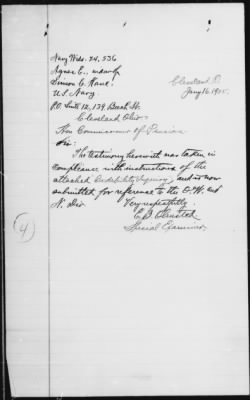 Navy Wid. 24,536
Agnes E., widow of
Simon C. Kane.
U.S. Navy
P.O. Suite 12, 139 Beech St.
Cleveland Ohio.
Cleveland, O.
Jany 16. 1905.
Hon Commissioner of Pensions
Sir:
The testimony herewith was taken in
compliance with instructions of the
attached Credibility Inquiry, and is now
submitted for reference to the O.W. and
N. Div.
Very respectfully
C.B. Olmsted
Special Examiner.
4